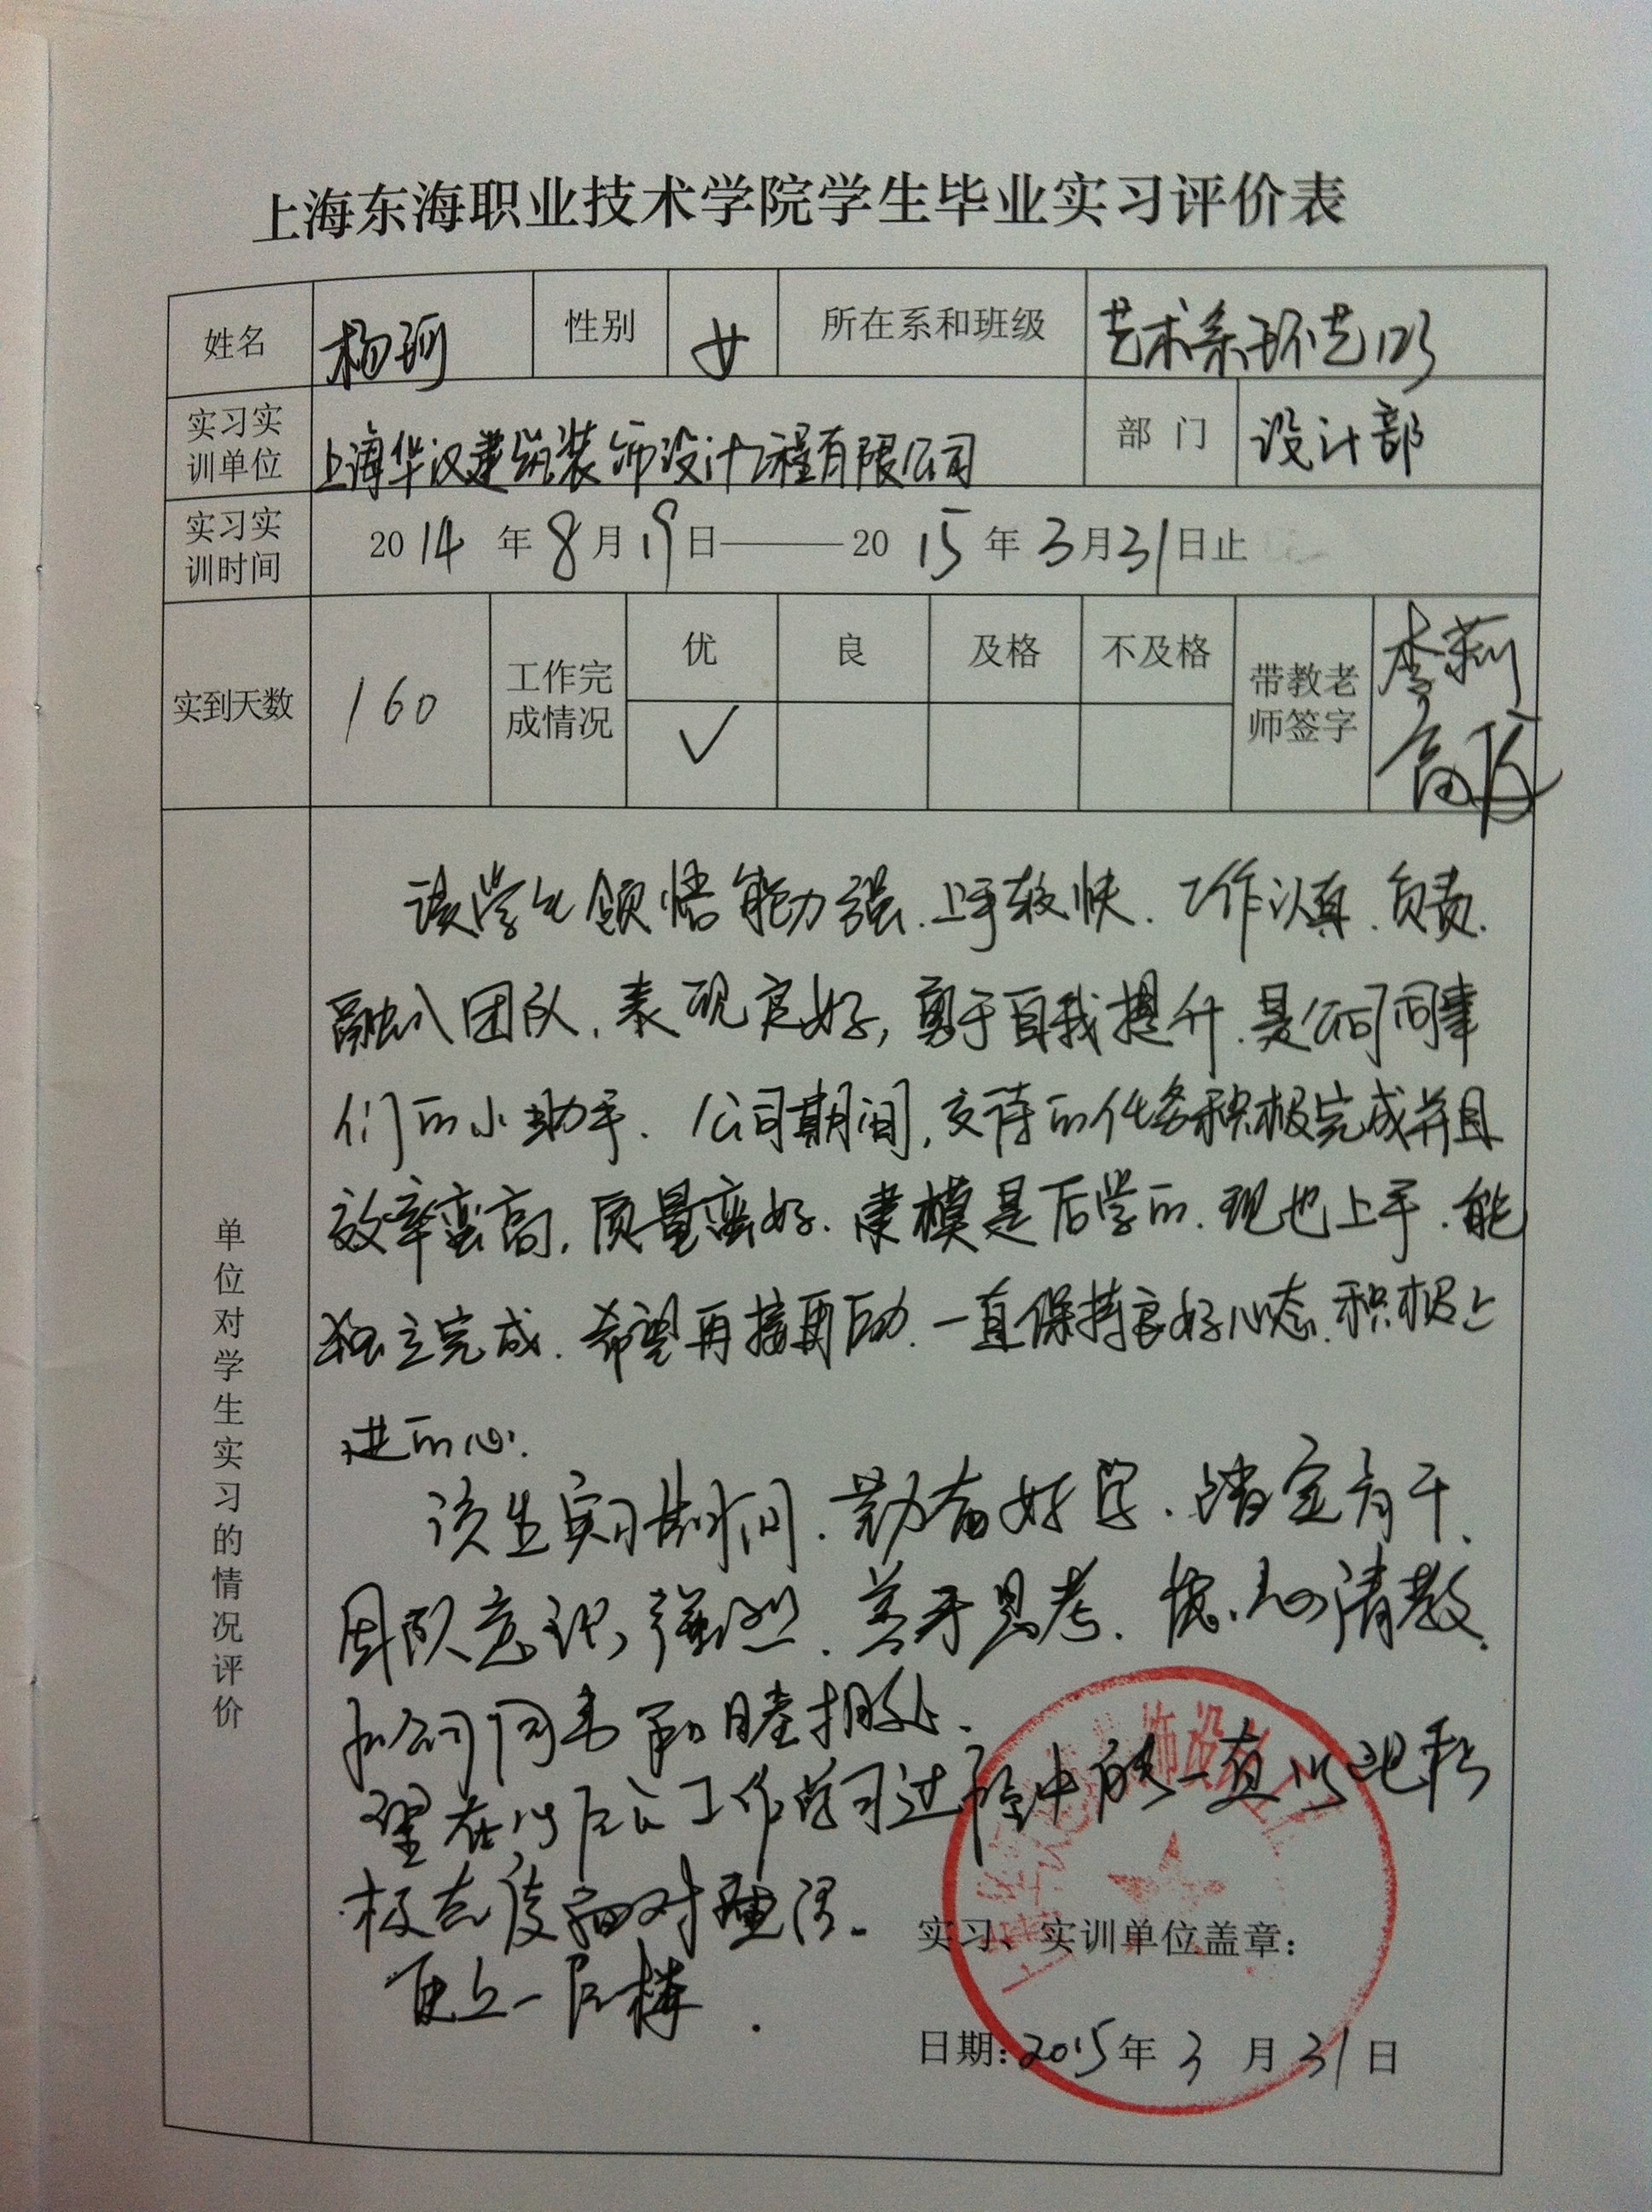 上海东海职业技术学院学生毕业实习评价表
姓名 杨珂 性别 女 所在系和班级 艺术系环艺123
实习实训单位 上海华汉建筑装饰设计工程有限公司 部门 设计部
实习实训时间 2014年8月19日——2015年3月31日止
实到天数 160 工作完成情况 优 良 及格 不及格 带教老师签字 李莉
√
单位对学生实习的情况评价
该学生领悟能力强.上手较快.工作认真.负责.
融入团队.表现良好,勇于自我提升.是公司同事
们的小助手.公司期间,交待的任务积极完成并且
效率蛮高,质量蛮好.建模是后学的.现也上手.能
独立完成.希望再接再励.一直保持良好心态.积极上
进的心.
该生实习期间.勤奋好学.踏实肯干.
团队意识强烈.善于思考.虚心请教.
和公司同事和睦相处.
望在以后的工作学习过程中能一直以此积
极态度面对生活.
更上一层楼.
实习、实训单位盖章:
日期:2015年3月31日